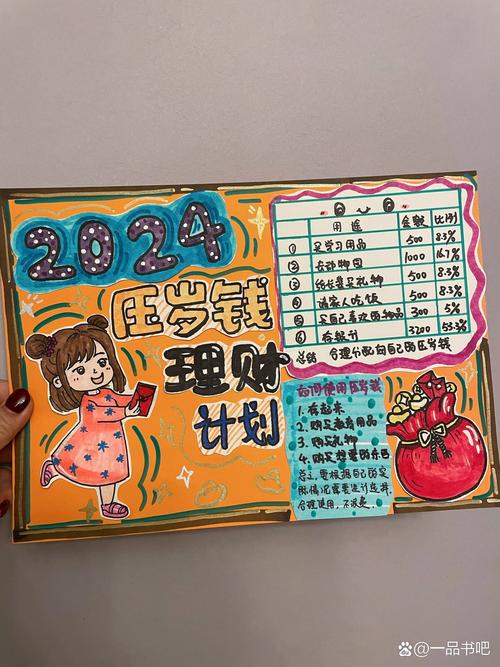 2024
压岁钱
理财
计划
用途 金额 比例
① 买学习用品 500 8.3%
② 去动物园 1000 16.7%
③ 给长辈买礼物 500 8.3%
④ 请家人吃饭 500 8.3%
⑤ 买自己喜欢的物品 300 5%
⑥ 存银行 3200 53.3%
总结 合理分配自己的压岁钱
如何使用压岁钱
1.存起来
2.购买教育用品
3.购买礼物
4.购买想要的东西
总之,要根据自己的实
际情况需要进行选择,
合理使用,不浪费。
@一品书吧